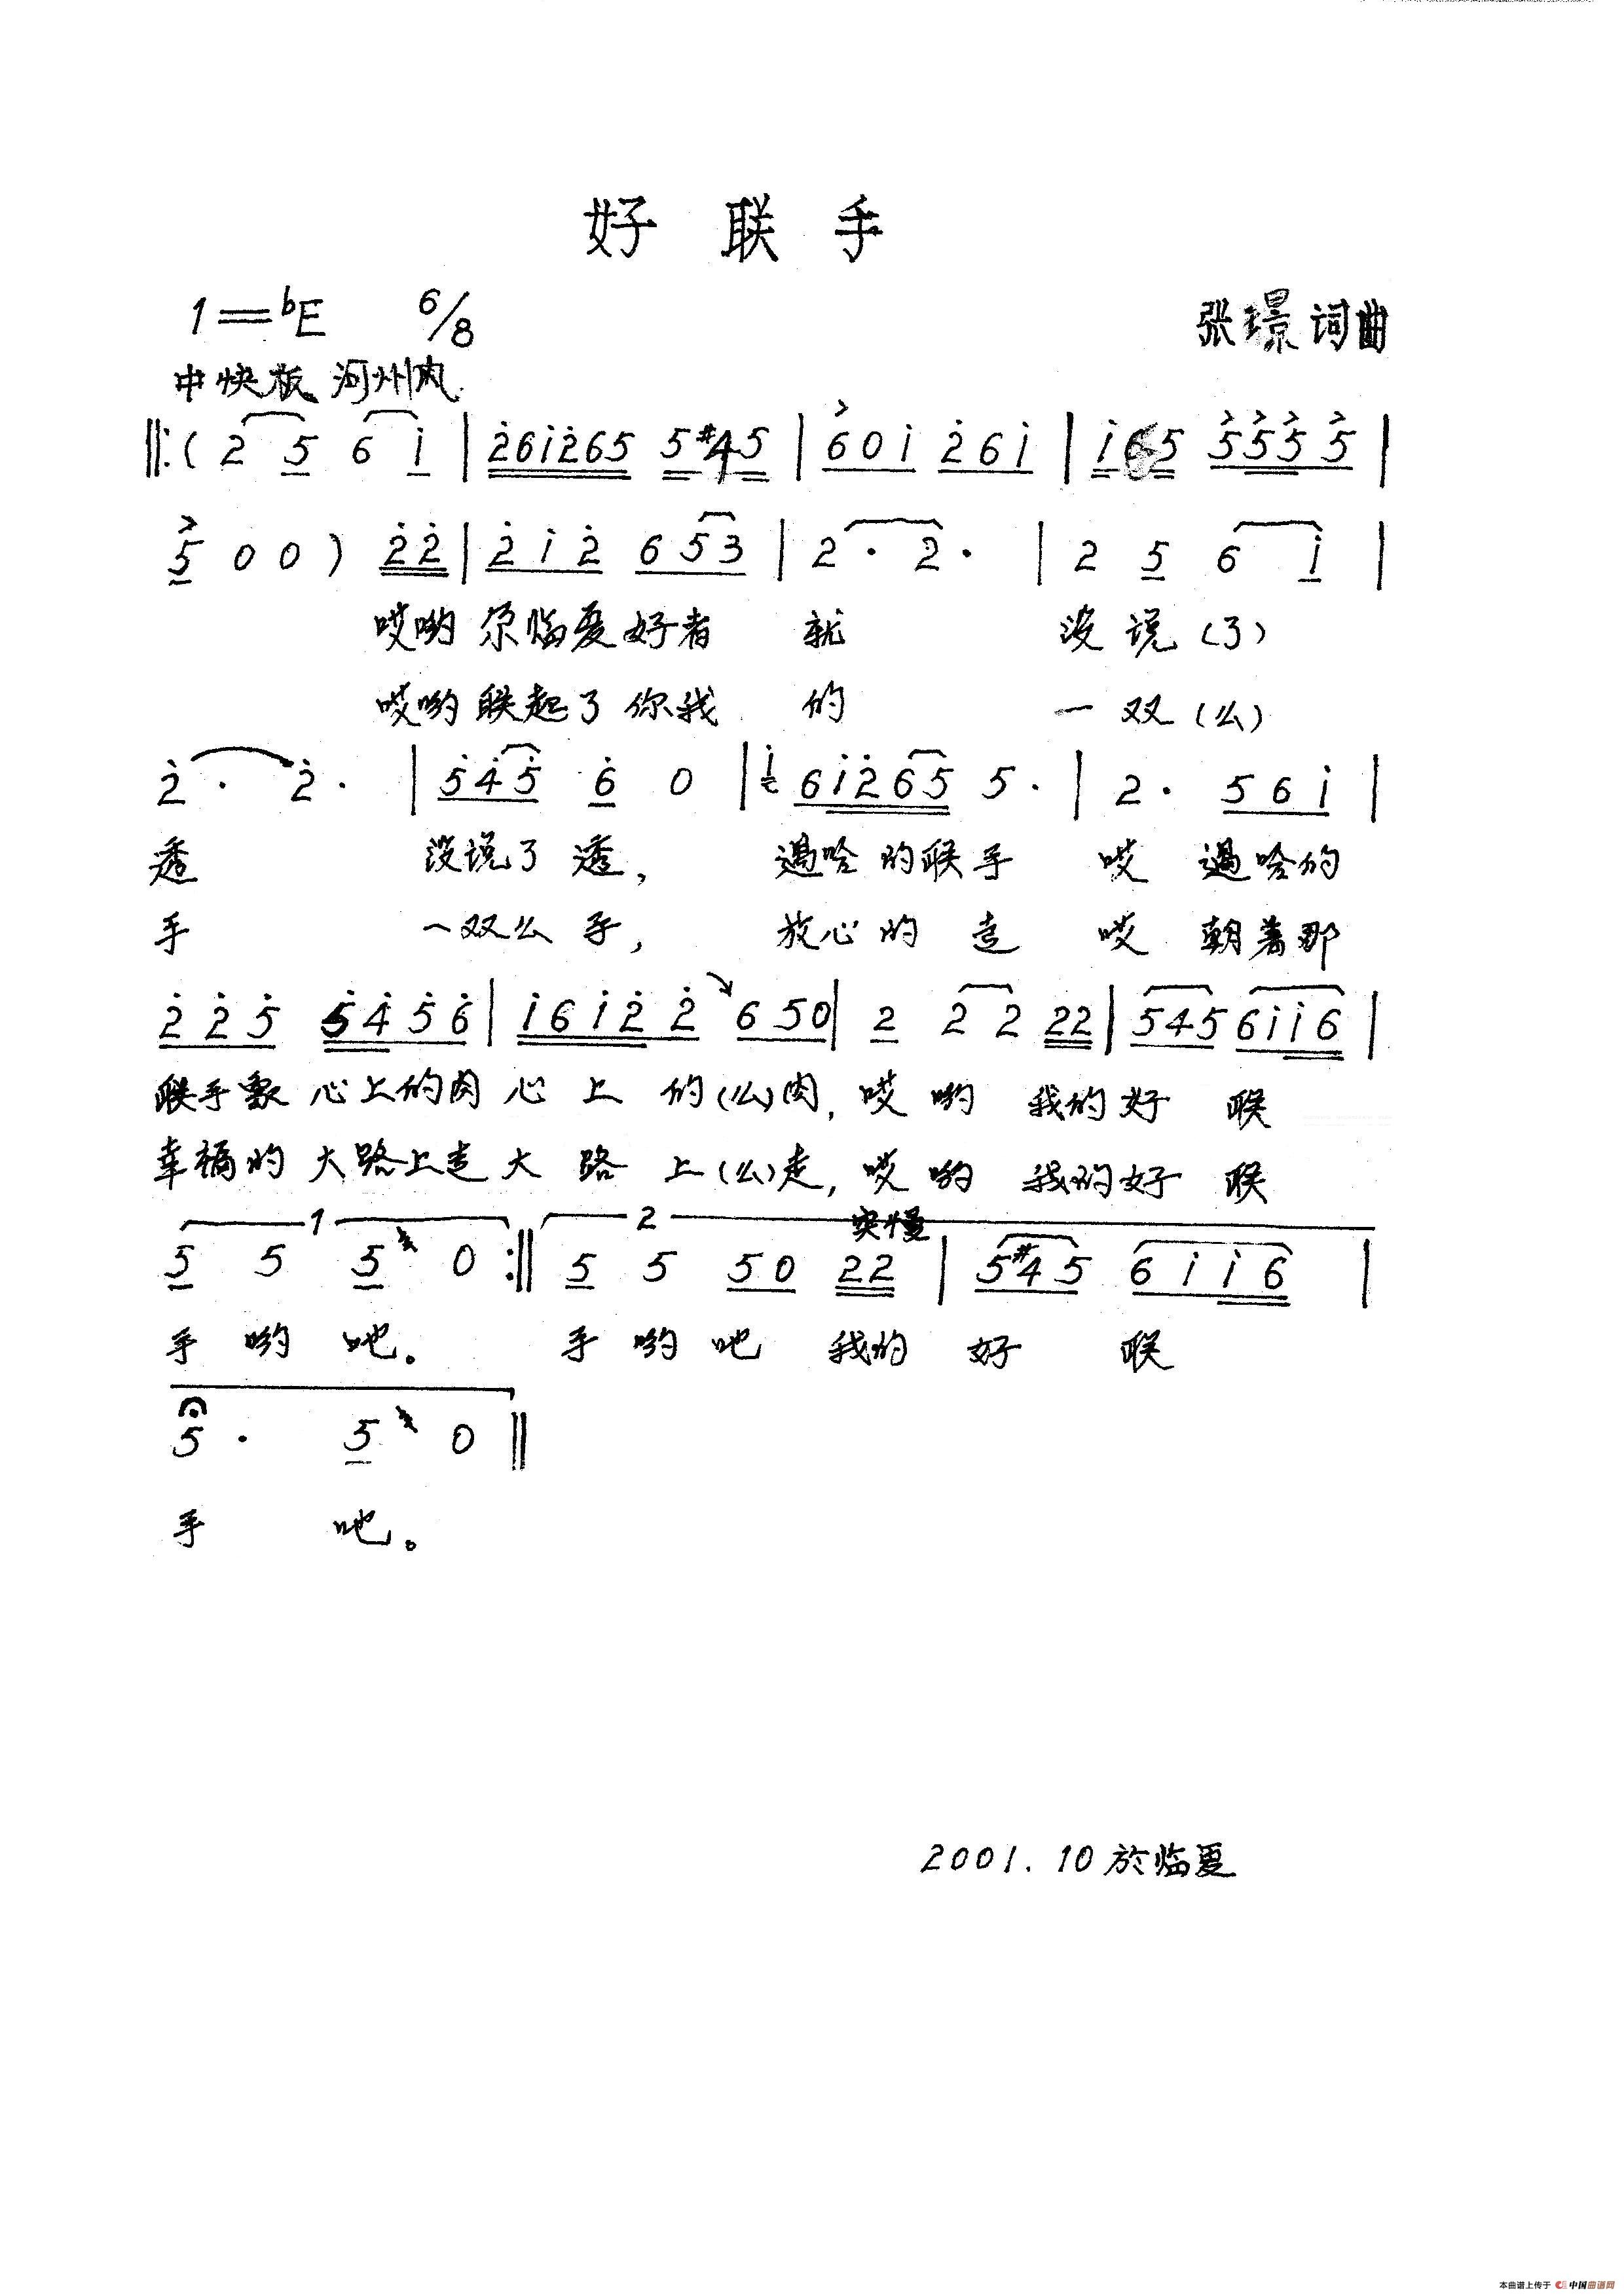 好联手
1=bE 6/8
张璟词曲
中快板 河州风
‖:( 2 5 6 i | 2̇6i2̇65 5#45 | 60i 2̇6i | i65 5555 |
5 0 0 ) 2̇2̇ | 2̇i2̇ 653 | 2· 2· | 2 5 6 i |
哎哟 尕临夏好者 就 没说(了)
哎哟 联起了你我 的 一双(么)
2̇· 2̇· | 5̇4̇5̇ 6̇ 0 | i 6i2̇65 5· | 2· 56i |
透 没说了透, 遇哈的联手 哎 遇哈的
手 一双么手, 放心的走 哎 朝着那
2̇2̇5̇ 5̇4̇5̇6̇ | i6i2̇2̇ 650 | 2 2 2 22 | 545 6ii6 |
联手象 心上的肉 心上的(么)肉, 哎哟 我的好联
幸福的 大路上走 大路上(么)走, 哎哟 我的好联
1 2 突慢
5 5 5 0 :‖ 5 5 50 22 | 5#45 6ii6 |
手哟吧。 手哟吧 我的好联
5· 5 0 ‖
手 吧。
2001.10於临夏
本曲谱上传于 中国曲谱网